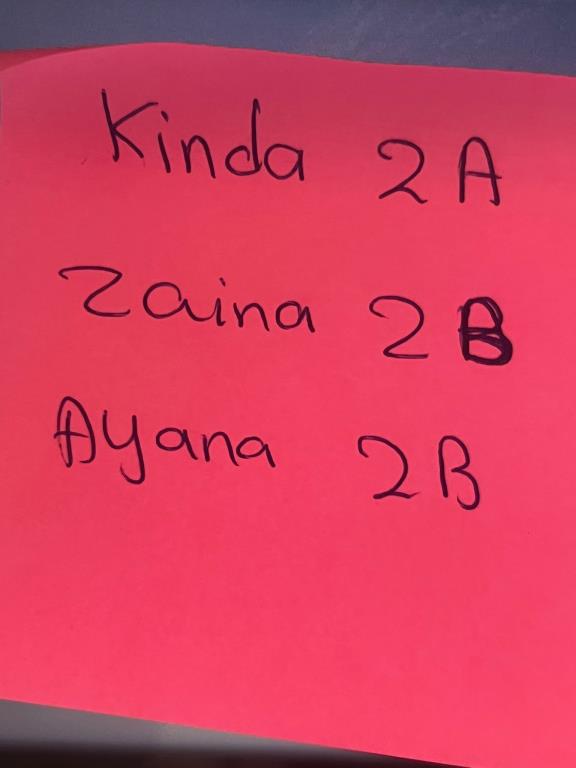 Kinda 2A
Zaina 2B
Ayana 2B